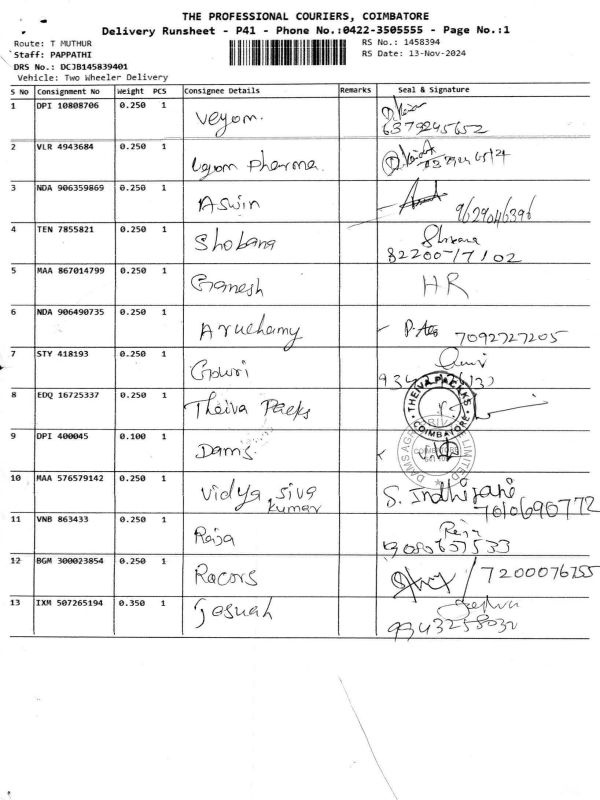 THE PROFESSIONAL COURIERS, COIMBATORE
Delivery Runsheet - P41 - Phone No.:0422-3505555 - Page No.:1
Route: T MUTHUR
RS No.: 1458394
Staff: PAPPATHI
RS Date: 13-Nov-2024
DRS No.: DCJB145839401
Vehicle: Two Wheeler Delivery
S No Consignment No Weight PCS Consignee Details Remarks Seal & Signature
1 DPI 10808706 0.250 1 Veyom.
6379245652
2 VLR 4943684 0.250 1 Veyom Pharma.
3 NDA 906359869 0.250 1 Aswin
9629046396
4 TEN 7855821 0.250 1 Shobana
5 MAA 867014799 0.250 1 Ganesh HR
6 NDA 906490735 0.250 1 Aruchamy 7092727205
7 STY 418193 0.250 1 Gowri
8 EDQ 16725337 0.250 1 Theiva Packs
THEIVA PACKS
COIMBATORE
9 DPI 400045 0.100 1 Dams.
10 MAA 576579142 0.250 1 Vidya, Siva
Kumar
S. Indhirani
7010690772
11 VNB 863433 0.250 1 Raja Raja
9080657533
12 BGM 300023854 0.250 1 Racors 7200076755
13 IXM 507265194 0.350 1 Josuah
9943258032